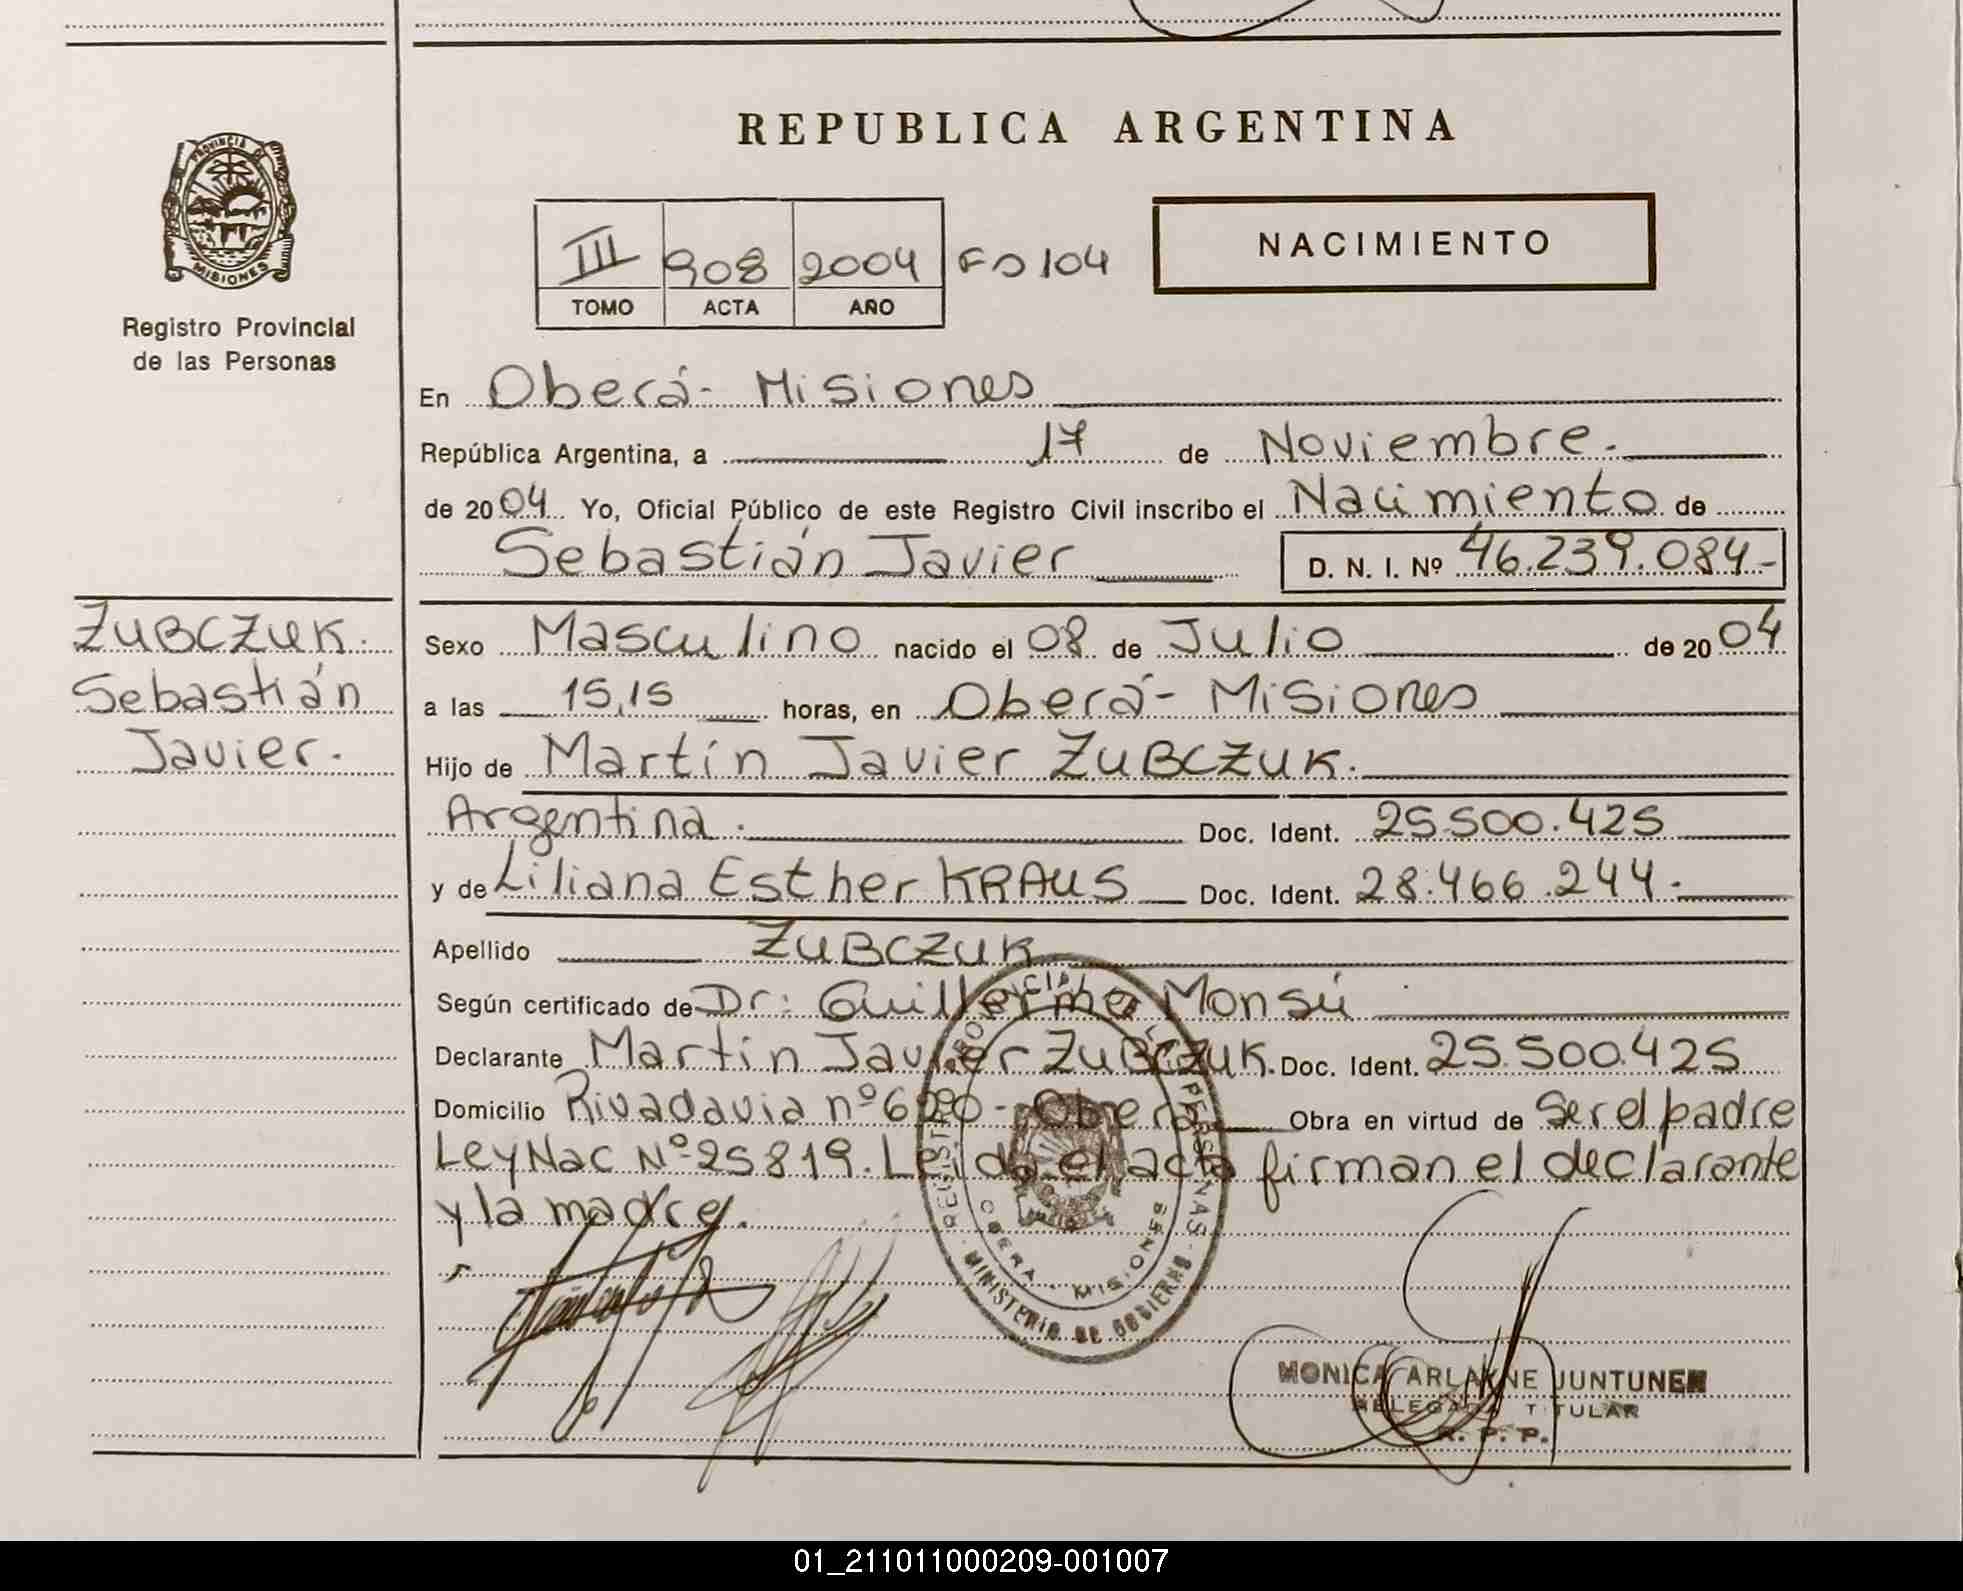 REPUBLICA ARGENTINA
PROVINCIA DE
MISIONES
Registro Provincial
de las Personas
III 908 2004 Fº 104
TOMO ACTA AÑO
NACIMIENTO
En Oberá- Misiones
República Argentina, a 17 de Noviembre.
de 2004 Yo, Oficial Público de este Registro Civil inscribo el Nacimiento de
Sebastián Javier D. N. I. Nº 46.239.084-
ZUBCZUK.
Sebastián
Javier.
Sexo Masculino nacido el 08 de Julio de 2004
a las 15,15 horas, en Oberá- Misiones
Hijo de Martín Javier ZUBCZUK.
Argentina. Doc. Ident. 25.500.425
y de Liliana Esther KRAUS Doc. Ident. 28.466.244.
Apellido ZUBCZUK
Según certificado de Dr: Guillermo Monsú
Declarante Martín Javier ZUBCZUK. Doc. Ident. 25.500.425
Domicilio Rivadavia nº - Oberá Obra en virtud de Ser el padre
Ley Nac Nº 25819. Leida el acta firman el declarante
y la madre.
REGISTRO PROVINCIAL DE LAS PERSONAS
MINISTERIO DE GOBIERNO
OBERA - MISIONES
MONICA ARLAYNE JUNTUNEN
DELEGADA TITULAR
R. P. P.
01_211011000209-001007